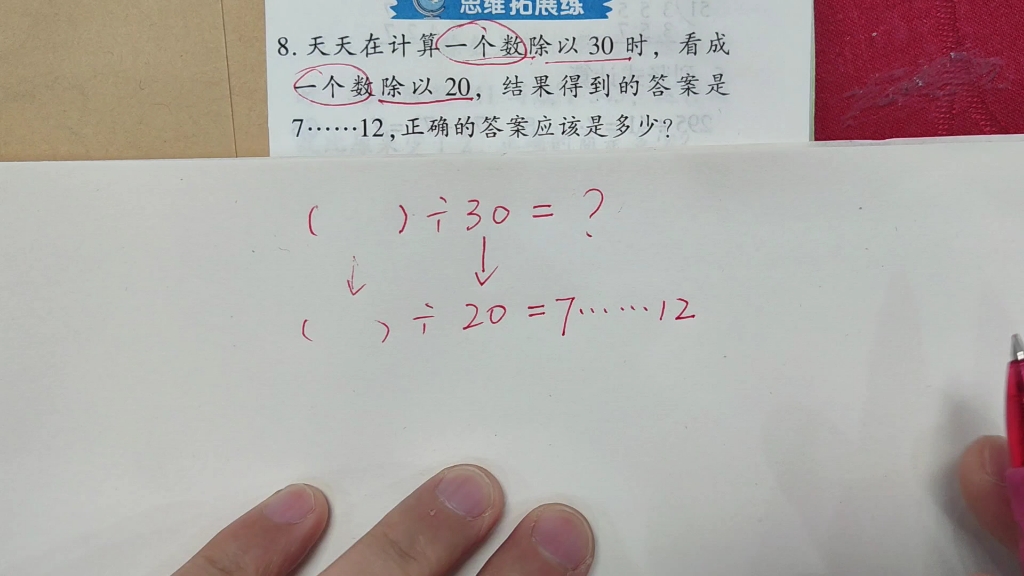 思维拓展练
8. 天天在计算一个数除以30时，看成
一个数除以20，结果得到的答案是
7……12，正确的答案应该是多少？
(    )÷30=?
(    )÷20=7……12